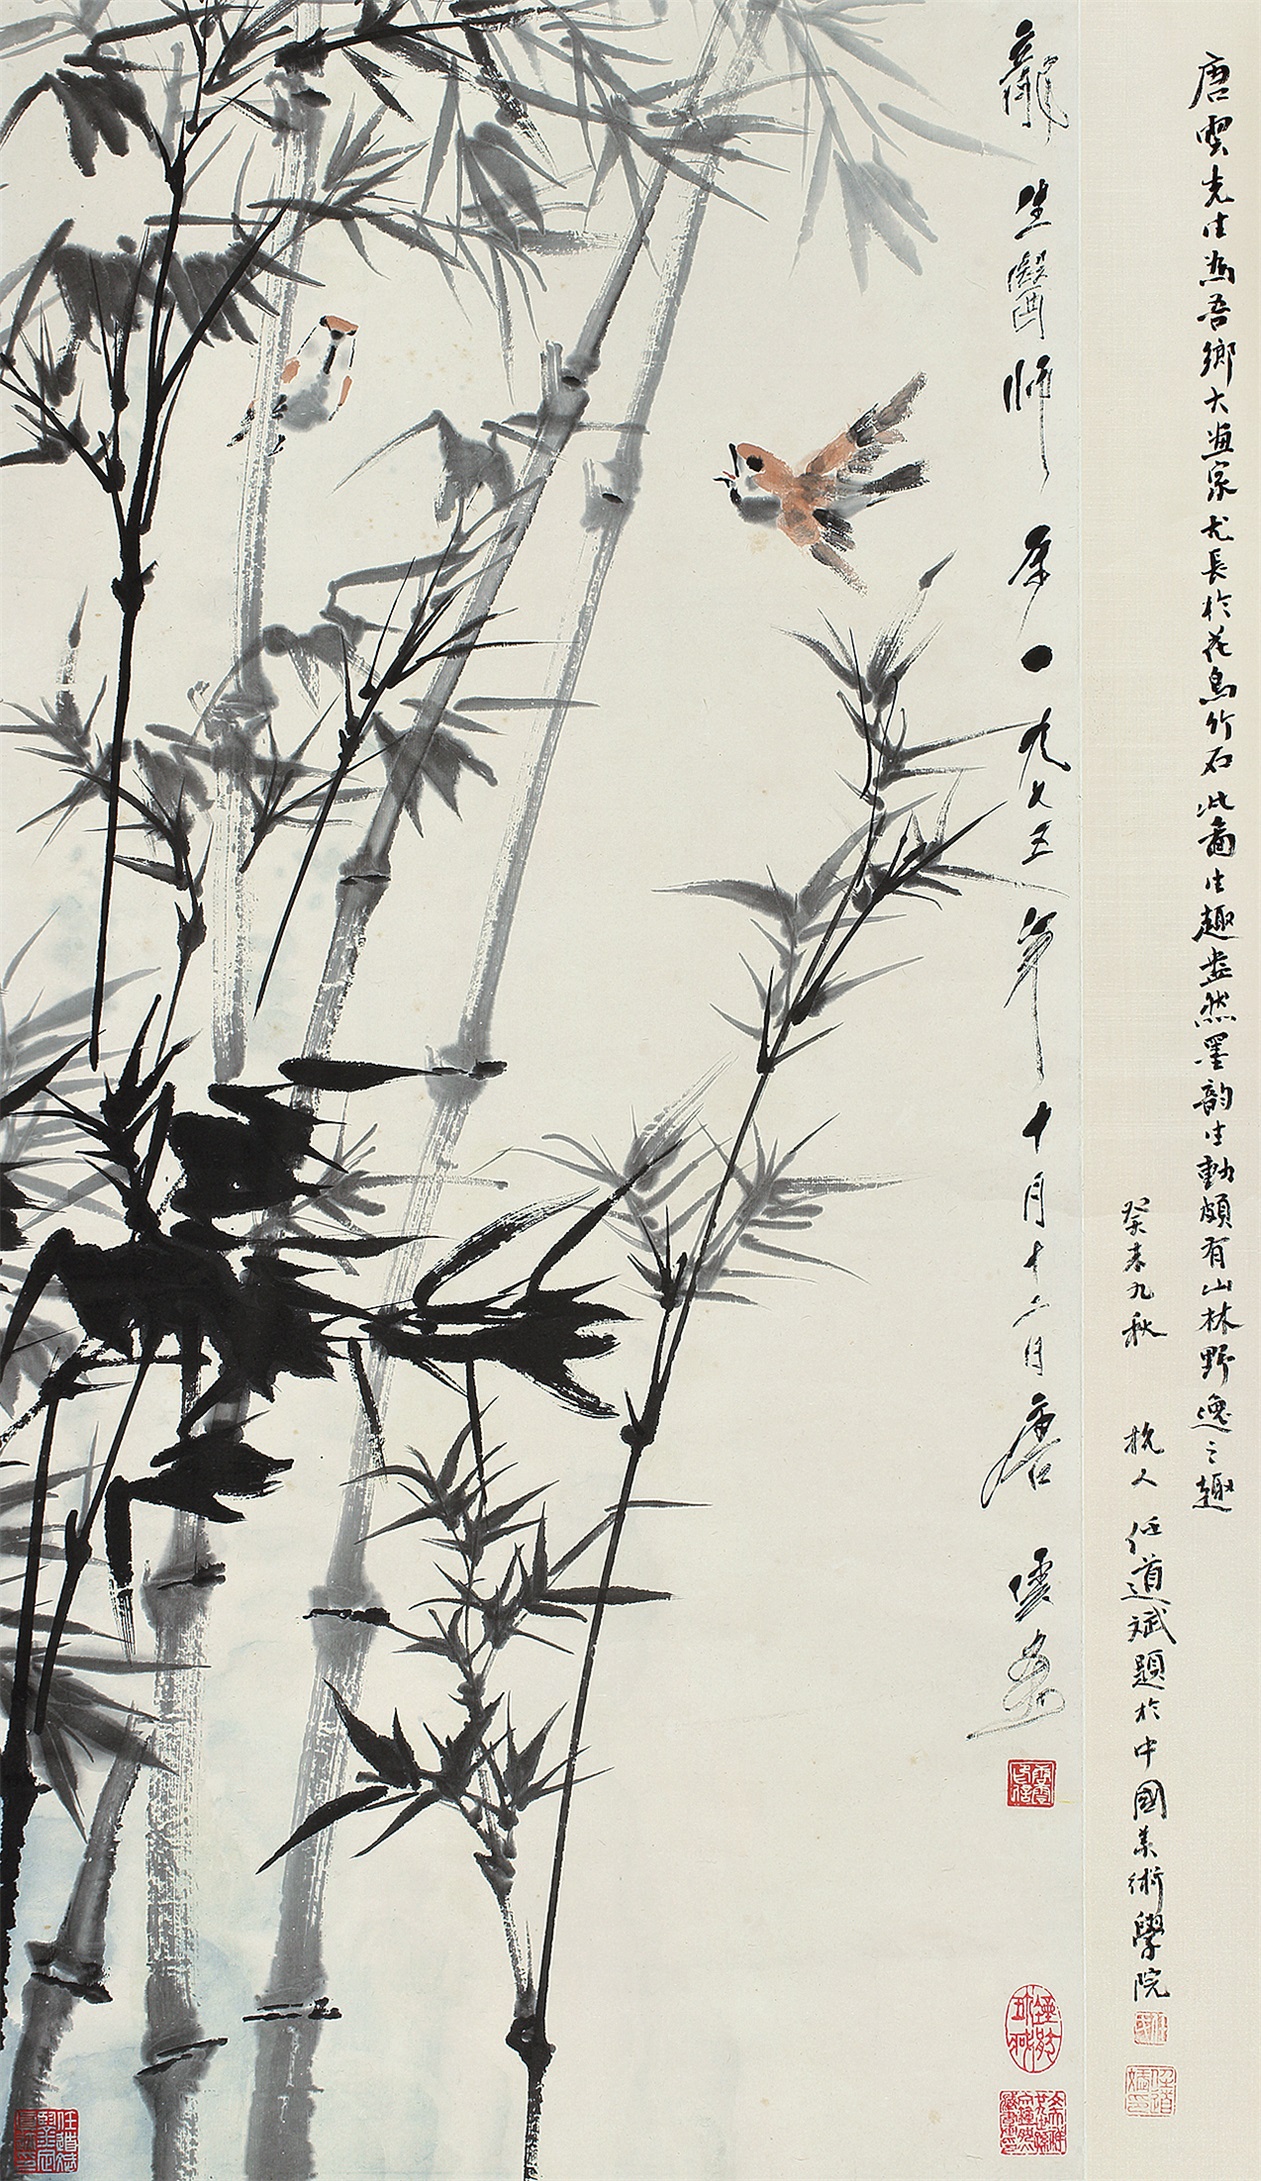 唐雲先生為吾鄉大畫家尤長於花鳥竹石此圖生趣盎然墨韵生動頗有山林野逸之趣
癸未九秋 杭人任道斌題於中國美術學院
龍生醫師 屬 一九七五年十月十二日唐雲畫
唐雲
任道斌